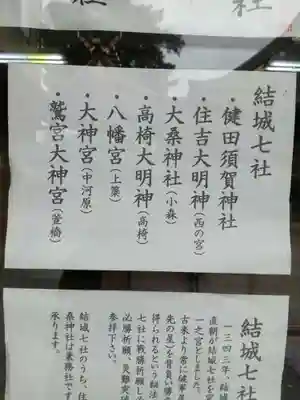 社
社
結城七社
・健田須賀神社
・住吉大明神(西の宮)
・大桑神社(小森)
・高椅大明神(高椅)
・八幡宮(上簗)
・大神宮(中河原)
・鷲宮大神宮(菅橋)
結城七社
一三四三年、結城
直朝が結城七社を
一之宮としました。
古来より常に健軍
先の星)を背負い勝
得られるという願法
七社に戦勝祈願し
必勝祈願、災難
参拝下さい。
結城七社のうち、住
桑神社は兼務社です
承ります。